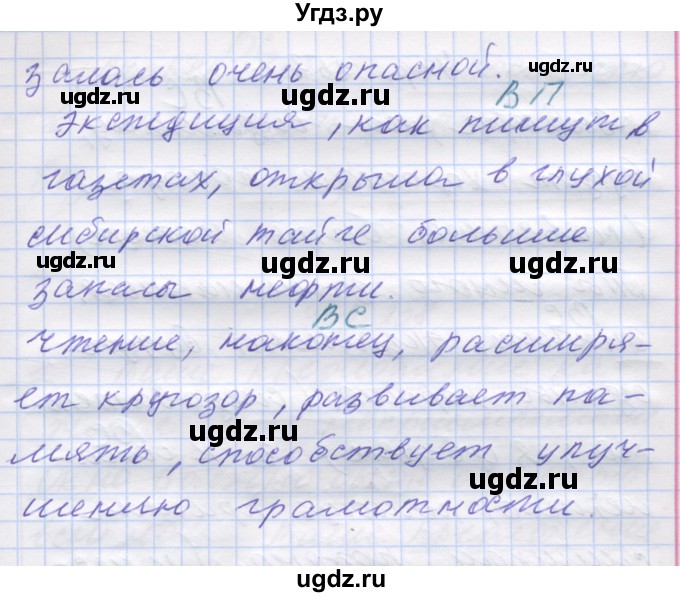 Угдз.ру
залось очень опасной.
ВП
Экспедиция, как пишут в
газетах, открыла в глухой
сибирской тайге большие
запасы нефти.
ВС
чтение, наконец, расширя-
ет кругозор, развивает па-
мять, способствует улуч-
шению грамотности.
ugdz.ru
ugdz.ru
ugdz.ru
ugdz.ru
ugdz.ru
ugdz.ru
ugdz.ru
ugdz.ru
ugdz.ru
ugdz.ru